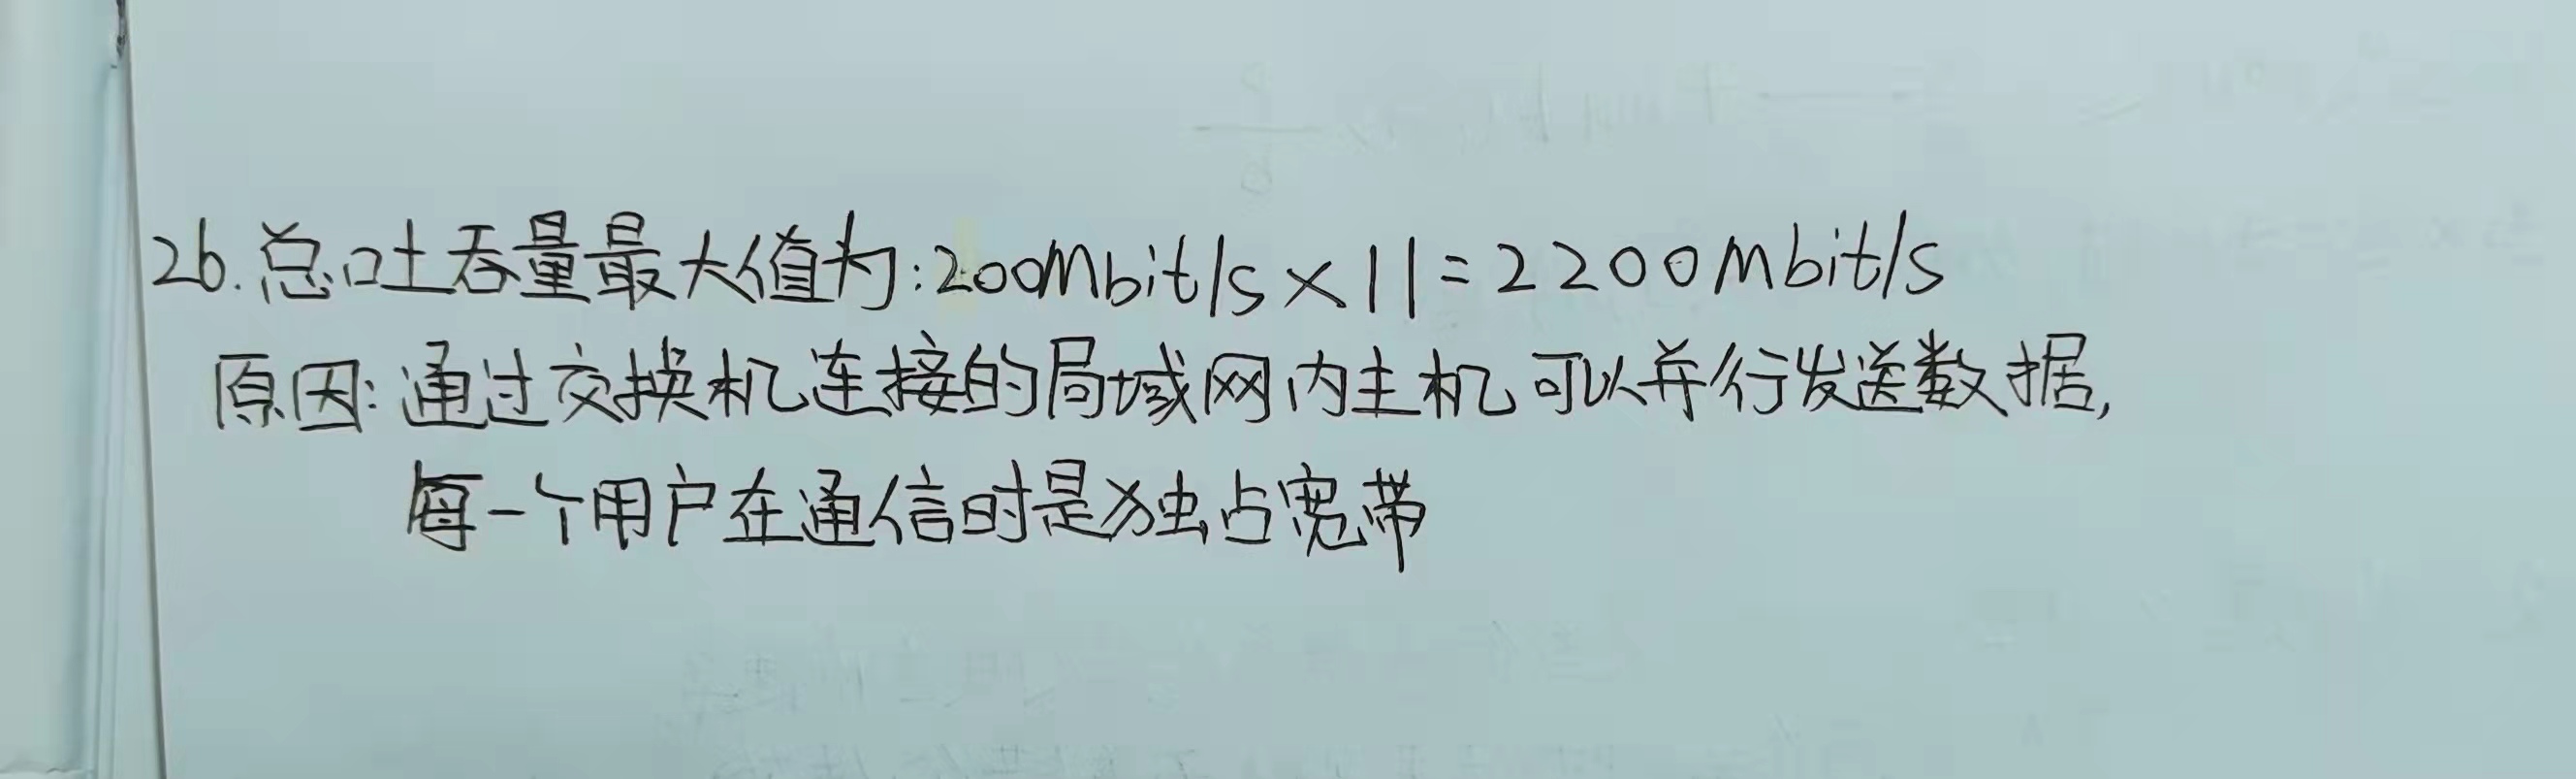 26.总吐吞量最大值为:200Mbit/s×11=2200Mbit/s
原因:通过交换机连接的局域网内主机可以并行发送数据,
每一个用户在通信时是独占宽带